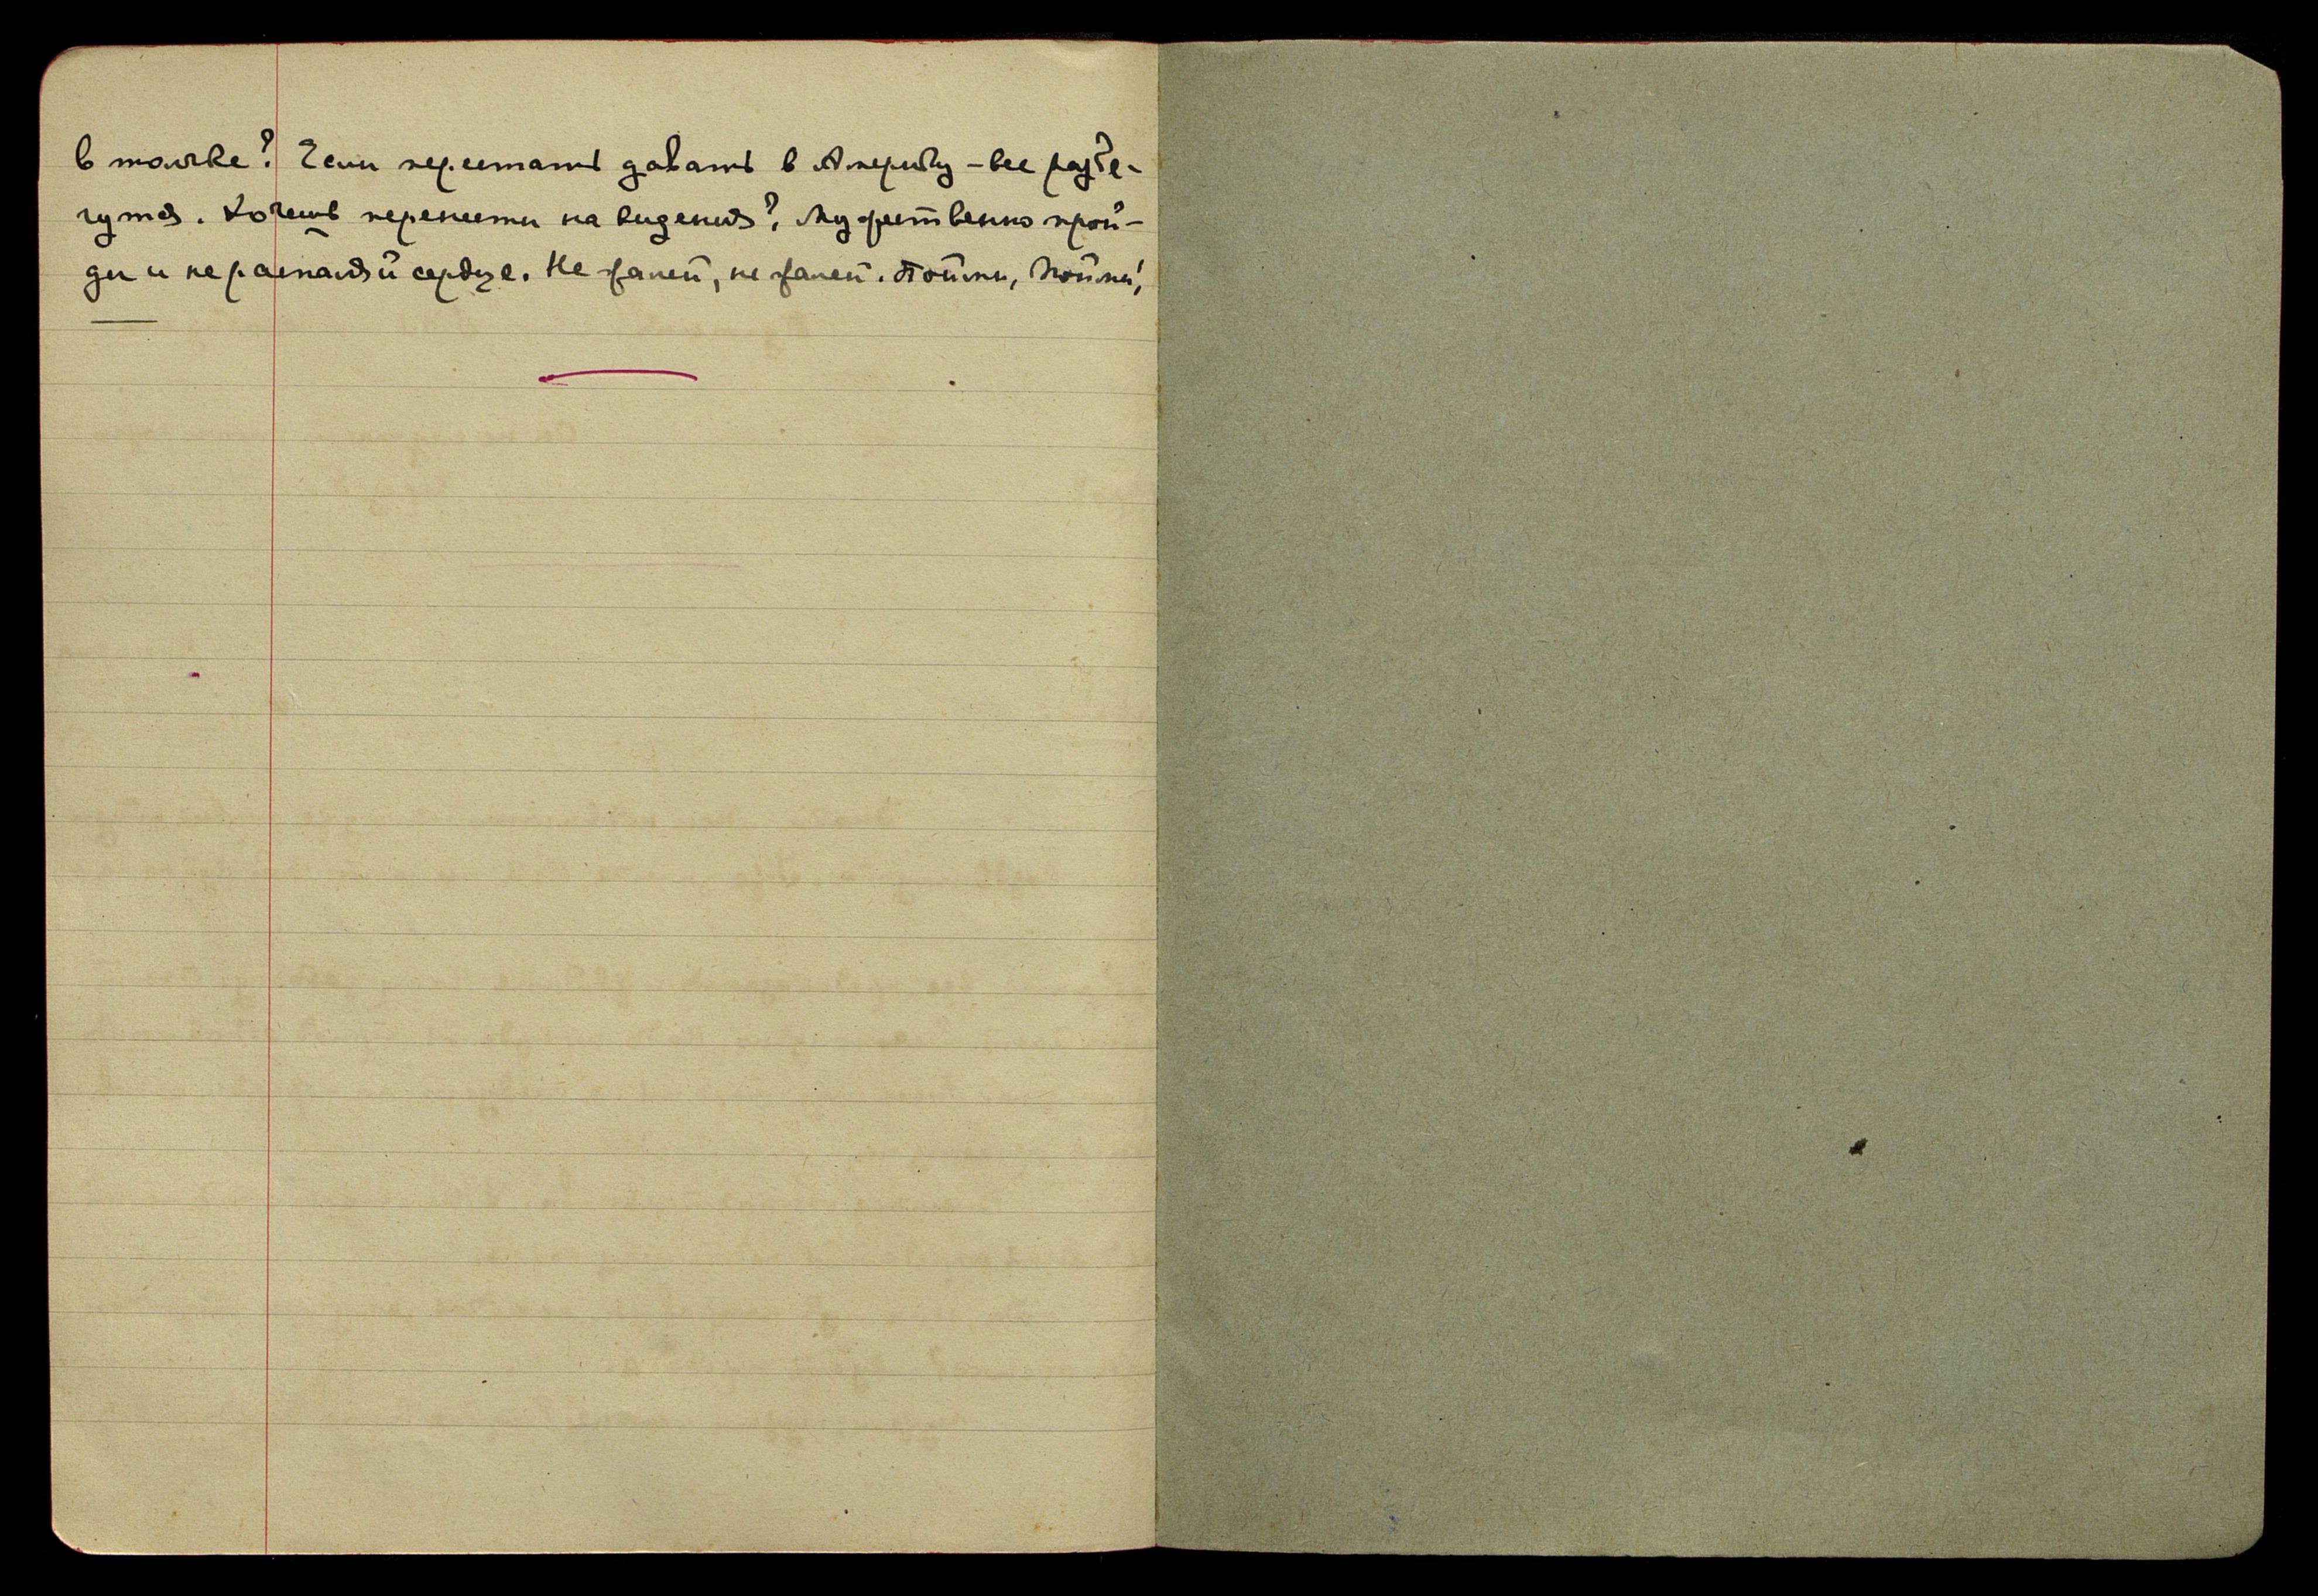 в толчке? Если перестать давать в Америку – все разбе-
гутся. Хочешь перенести на видения? Мужественно прой-
ди и не распаляй сердце. Не жалей, не жалей. Пойми, пойми!